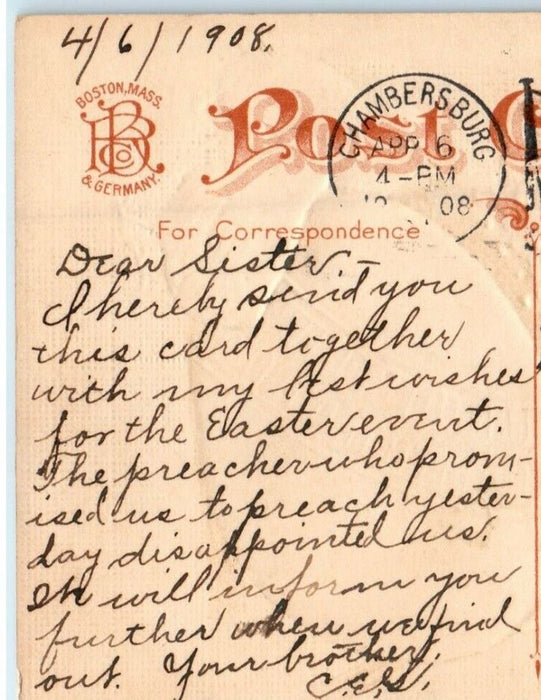 4/6/1908.
BOSTON, MASS.
BRCo
& GERMANY.
Post C
CHAMBERSBURG
APR 6
4-PM
08
For Correspondence
Dear Sister –
I hereby send you
this card together
with my best wishes
for the Easter event.
The preacher who prom-
ised us to preach yester-
day disappointed us.
will inform you
further when we find
out. Your brother,